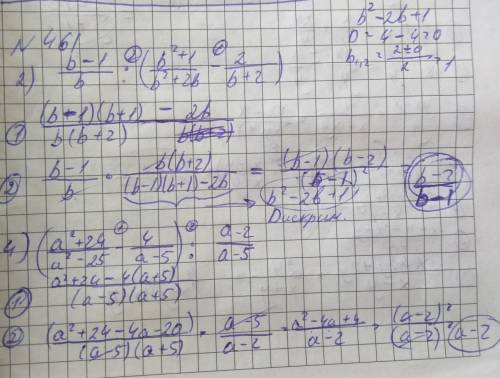 N 461
b² - 2b + 1
D = 4 - 4 = 0
b₁,₂ = (2 ± 0)/2 = 1
2) (b-1)/b : ((b²+1)/(b²+2b) - 2/(b+2))
① ((b-1)(b+1) - 2b)/(b(b+2))
② (b-1)/b · b(b+2)/((b-1)(b+1)-2b) = (b-1)(b-2)/(b-1)² (b-2)/(b-1)
b² - 2b + 1)
Дискрим.
4) ((a²+24)/(a²-25) - 4/(a-5)) : (a-2)/(a-5)
① (a²+24-4(a+5))/((a-5)(a+5))
② (a²+24-4a-20)/((a-5)(a+5)) · (a-5)/(a-2) = (a²-4a+4)/(a-2) = (a-2)²/(a-2) = a-2